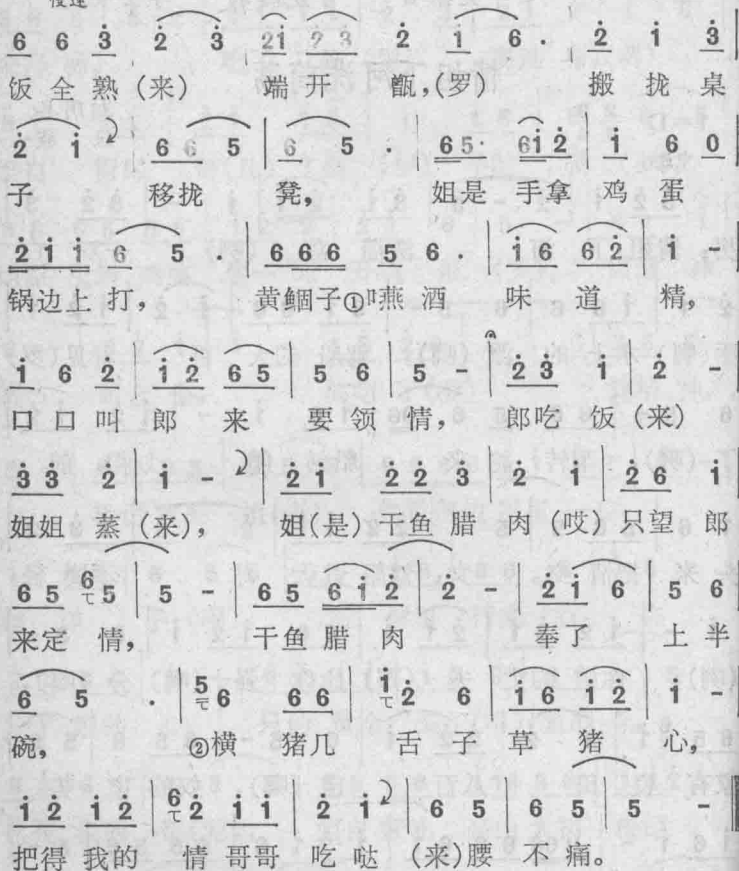 慢速
6 6 3̇ 2̇ 3̇ 2̇i̇ 2̇ 3̇ 2̇ i̇ 6 · 2̇ i̇ 3̇
饭 全 熟 (来) 端 开 甑,(罗) 搬 拢 桌
2̇ i̇ 6 6 5 | 6 5 · | 6 5· 6i̇2̇ | i̇ 6 0
子 移拢 凳, 姐是 手拿 鸡 蛋
2̇ i̇ i̇ 6 5 · | 6 6 6 5 6 · | i̇6 62̇ | i̇ - |
锅边上 打, 黄鲴子①卩燕 酒 味 道 精,
i̇ 6 2̇ | i̇2̇ 65 | 5 6 | 5 - | 2̇3̇ i̇ | 2̇ -
口 口 叫 郎 来 要 领 情, 郎吃 饭 (来)
3̇3̇ 2̇ | i̇ - | 2̇i̇ 2̇2̇ 3̇ | 2̇ i̇ | 2̇6 i̇
姐姐 蒸 (来), 姐(是) 干鱼 腊 肉 (哎) 只望 郎
65 6 5 | 5 - | 65 6i̇2̇ 2̇ - | 2̇i̇ 6 | 5 6
来定 情, 干鱼 腊 肉 奉了 上半
6 5 · | 5 6 66 | i̇ 2̇ 6 | i̇6 i̇2̇ | i̇ -
碗, ②横 猪几 舌 子 草 猪 心,
i̇2̇ i̇2̇ | 6 2̇ i̇i̇ | 2̇ i̇ | 6 5 | 6 5 | 5 -
把得 我的 情 哥哥 吃 哒 (来)腰 不 痛。